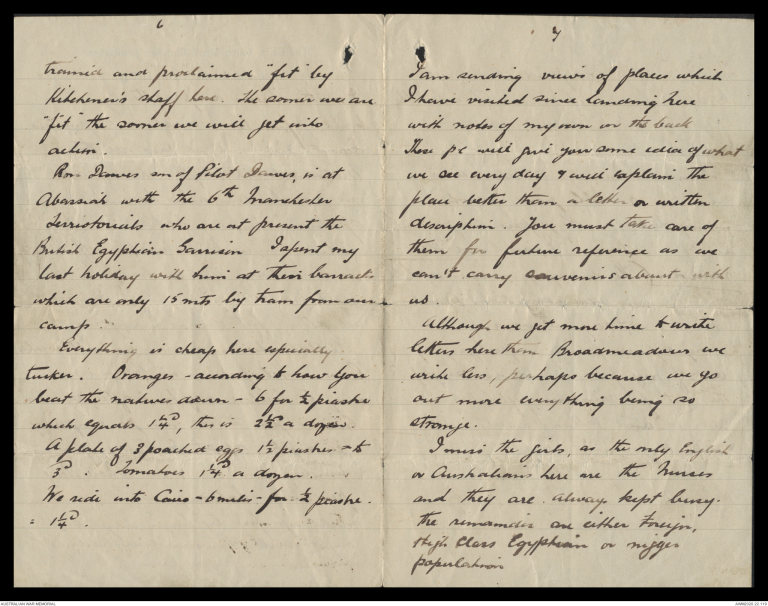 6
trained and proclaimed "fit" by
Kitchener's staff here. The sooner we are
"fit" the sooner we will get into
action.
Ron Dawes son of Pilot Dawes, is at
Abassiah with the 6th Manchester
Territorials who are at present the
British Egyptian Garrison I spent my
last holiday with him at their barracks
which are only 15 mts by tram from our
camp.
Everything is cheap here especially
tucker. Oranges - according to how you
beat the natives down - 6 for ½ piastre
which equals 1¼D, this is 2½D a dozen.
A plate of 3 poached eggs 1½ piastres = to
3D. Tomatoes 1¼D a dozen.
We ride into Cairo - 6 miles - for ½ piastre.
= 1¼D.
7
I am sending views of places which
I have visited since landing here
with notes of my own on the back
These pc will give you some idiea of what
we see every day & will explain the
place better than a letter or written
discription. You must take care of
them for further reference as we
can't carry souvenirs about with
us.
Although we get more time to write
letters here than Broadmeadows we
write less, perhaps because we go
out more everything being so
strange.
I miss the girls, as the only English
or Australians here are the Nurses
and they are always kept busy.
the remainder are either Foreign,
High Class Egyptian or nigger
population
AUSTRALIAN WAR MEMORIAL